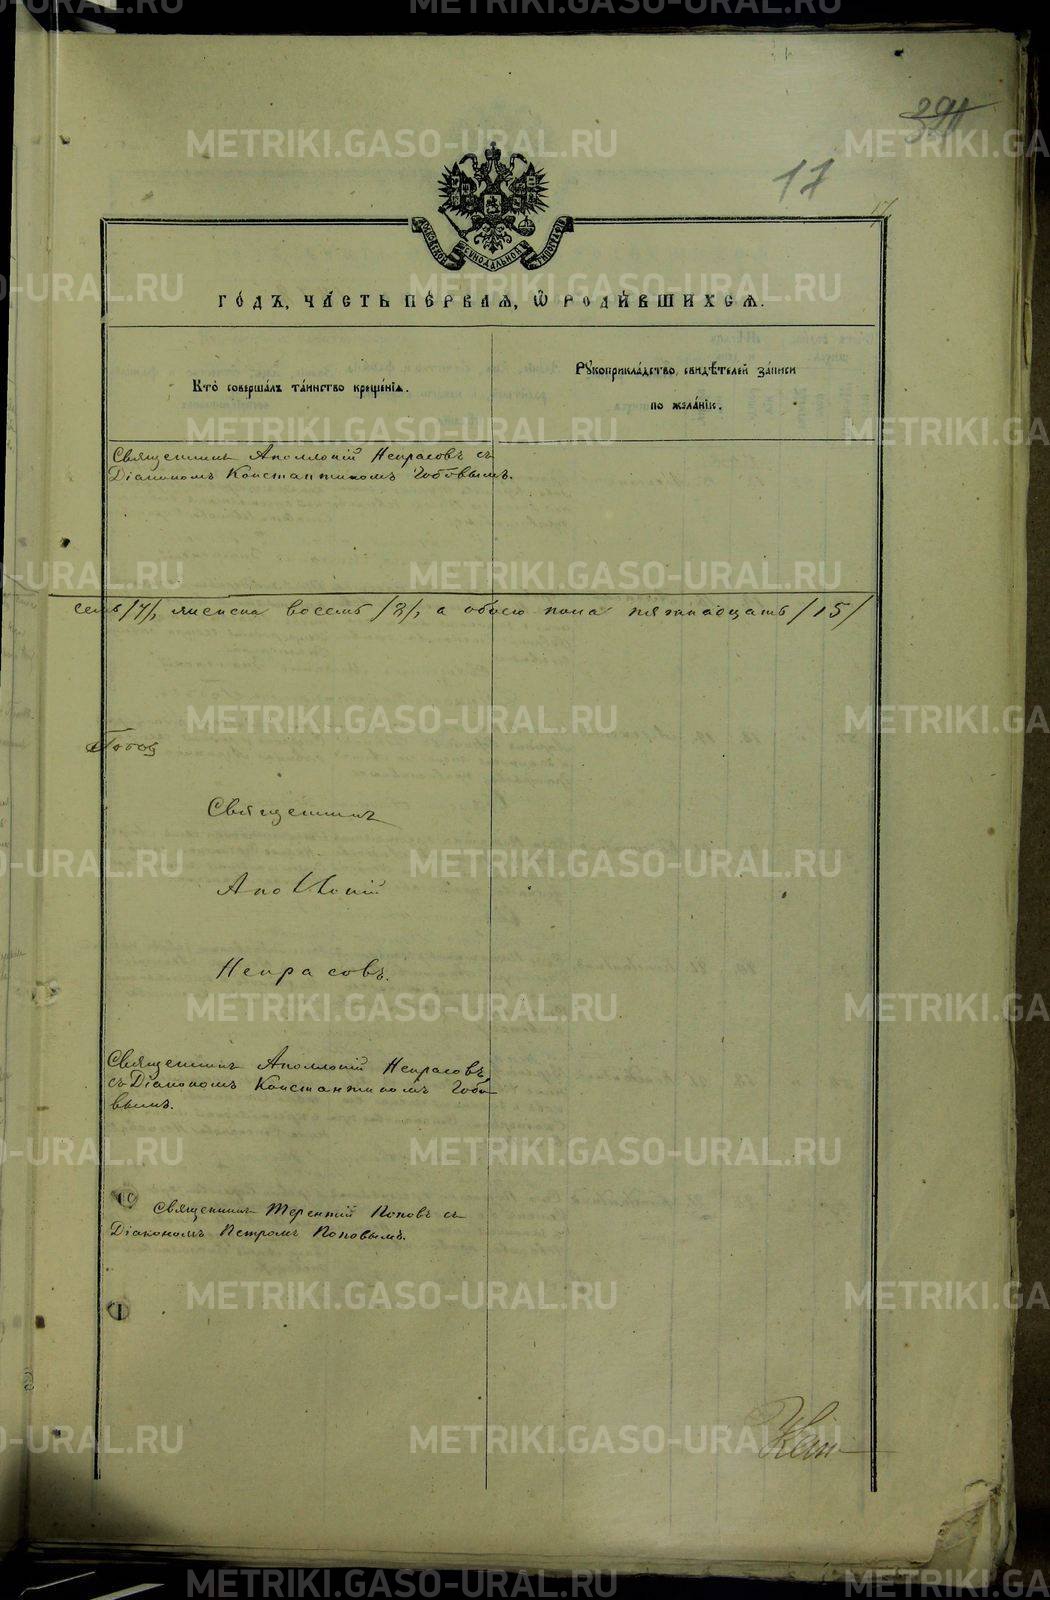 390
17
17
МОСКОВСКОЙ СУНОДАЛЬНОЙ ТИПОГРАФІИ
ГО́ДЪ, ЧА́СТЬ ПЕ́РВАѦ, Ѡ҆ РОДИ́ВШИХСѦ.
Кто̀ соверша́лъ та́инство креще́нїѧ.
Рꙋкоприкла́дство свидѣ́телей за́писи
по жела́нїю.
Священникъ Аполлоній Некрасовъ съ
Діакономъ Константиномъ
семь /7/, женска восемь /8/, а обоего пола пятнадцать /15/
Священникъ
Аполлоній
Некрасовъ.
Священникъ Аполлоній Некрасовъ
съ Діакономъ Константиномъ
вымъ.
Священникъ Терентій Поповъ съ
Діакономъ Петромъ Поповымъ.
METRIKI.GASO-URAL.RU